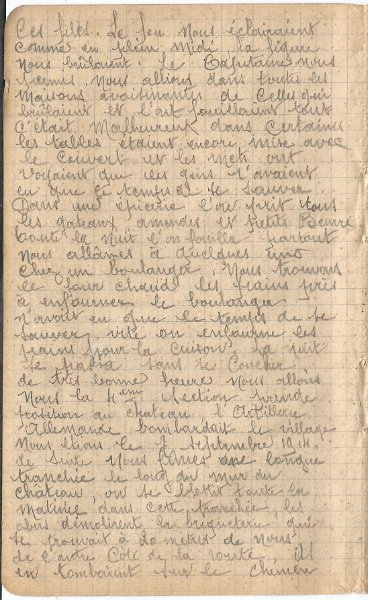 Ces files. Le feu nous éclairaient
comme en plein midi, la figure
nous brûlaient. Le Capitaine nous
permet, nous allions dans toutes les
maisons avoisinantes de celles qui
brûlaient et l'art fouillaient tout
c'était Malheureux dans Certaines
les tables étaient encore mise avec
le couvert et les mets ont
voyaient que les gens n'avaient
eu que le temps de se sauver.
Dans une épicerie l'on prit tous
les gateaux, amendes et petits Beurre
toute la nuit l'on fouilla partout
nous allâmes à quelques uns
chez un boulanger. Nous trouvons
le four chaud les pains près
à enfourner le boulanger
n'avait eu que le temps de se
sauver, vite on enfourne les
pains pour la cuison. La nuit
se passa sans se Coucher
de très bonne heure nous allons
nous la 4ème section prendre
position au château, l'Artillerie
Allemande bombardait le village
nous étions le 7 septembre 1914.
de suite nous fimes une longue
tranchée le long du mur du
Château, on se blottit toute la
matinée dans cette tranchée, les
obus démolirent la briqueterie qui
se trouvait à 20 metres de nous
de l'autre Côté de la route, ils
en tombaient sur le chemin